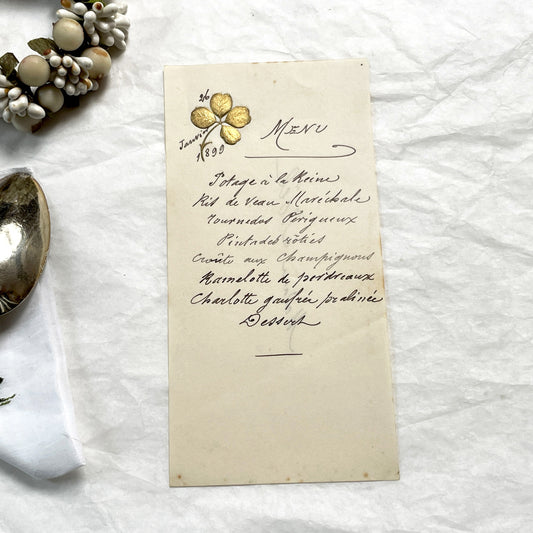 26
Janvier
1899
MENU
Potage à la Reine
Ris de veau Maréchale
Tournedos Périgueux
Pintades rôties
Croûte aux Champignons
Ramelotte de perdreaux
Charlotte gaufrée pralinée
Dessert